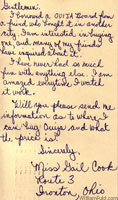 Gentlemen:
I borrowed a OUIJA Board from
a friend who bought it in another
city. I am interested in buying
one, and many of my friends
have inquired about it.
I have never had so much
fun with anything else. I am
amazed everytime I watch
it work.
Will you please send me
information as to where I
can buy Ouija and what
the price is?
Sincerely,
Miss Gail Cook
Route 3
Ironton, Ohio
WilliamFuld.com